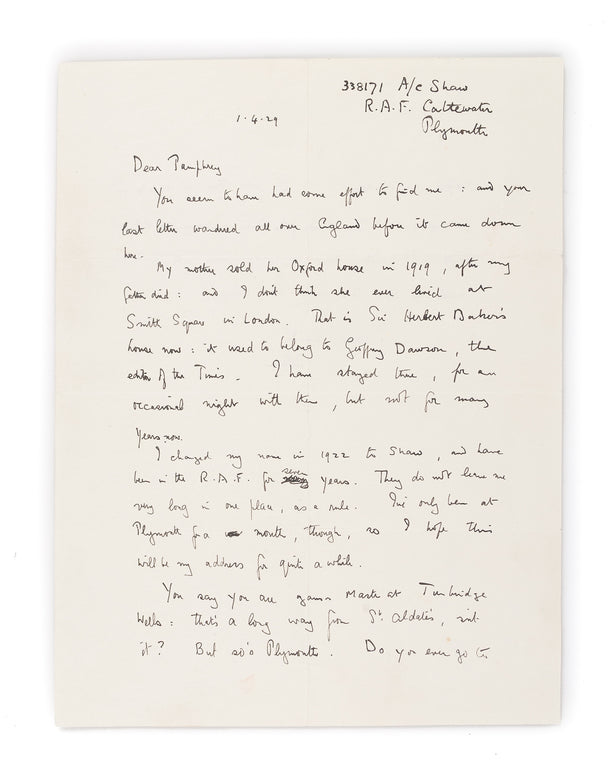 338171 A/c Shaw
R.A.F. Cattewater
Plymouth
1.4.29
Dear Pamphrey
You seem to have had some effort to find me : and your
last letter wandered all over England before it came down
here.
My mother sold her Oxford house in 1919, after my
father died : and I don't think she ever lived at
Smith Square in London. That is Sir Herbert Baker's
house now : it used to belong to Geoffrey Dawson, the
editor of the Times. I have stayed there, for an
occasional night with them, but not for many
years now.
I changed my name in 1922 to Shaw, and have
been in the R.A.F. for seven years. They do not leave me
very long in one place, as a rule. I've only been at
Plymouth for a month, though, so I hope this
will be my address for quite a while.
You say you are games Master at Tunbridge
Wells : that's a long way from St. Aldate's, isn't
it? But so's Plymouth. Do you ever go to